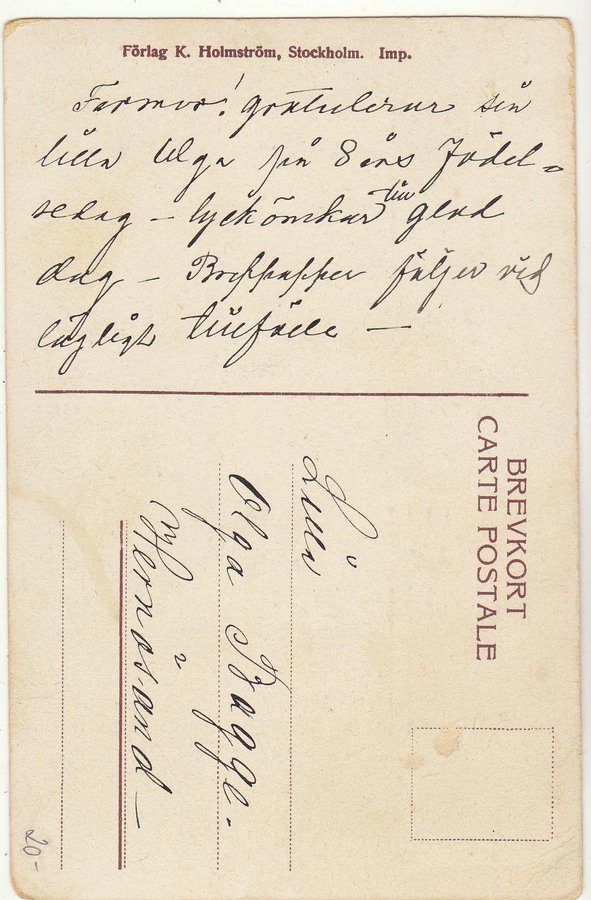 Förlag K. Holmström, Stockholm. Imp.
Farmor! gratulerar sin
lilla Olga på 8 års Födel-
sedag – lyckönskar till glad
dag – Brefpapper följer vid
lägligt tillfälle –
BREVKORT
CARTE POSTALE
Lilla
Olga Bagge.
Hernösand –
20-